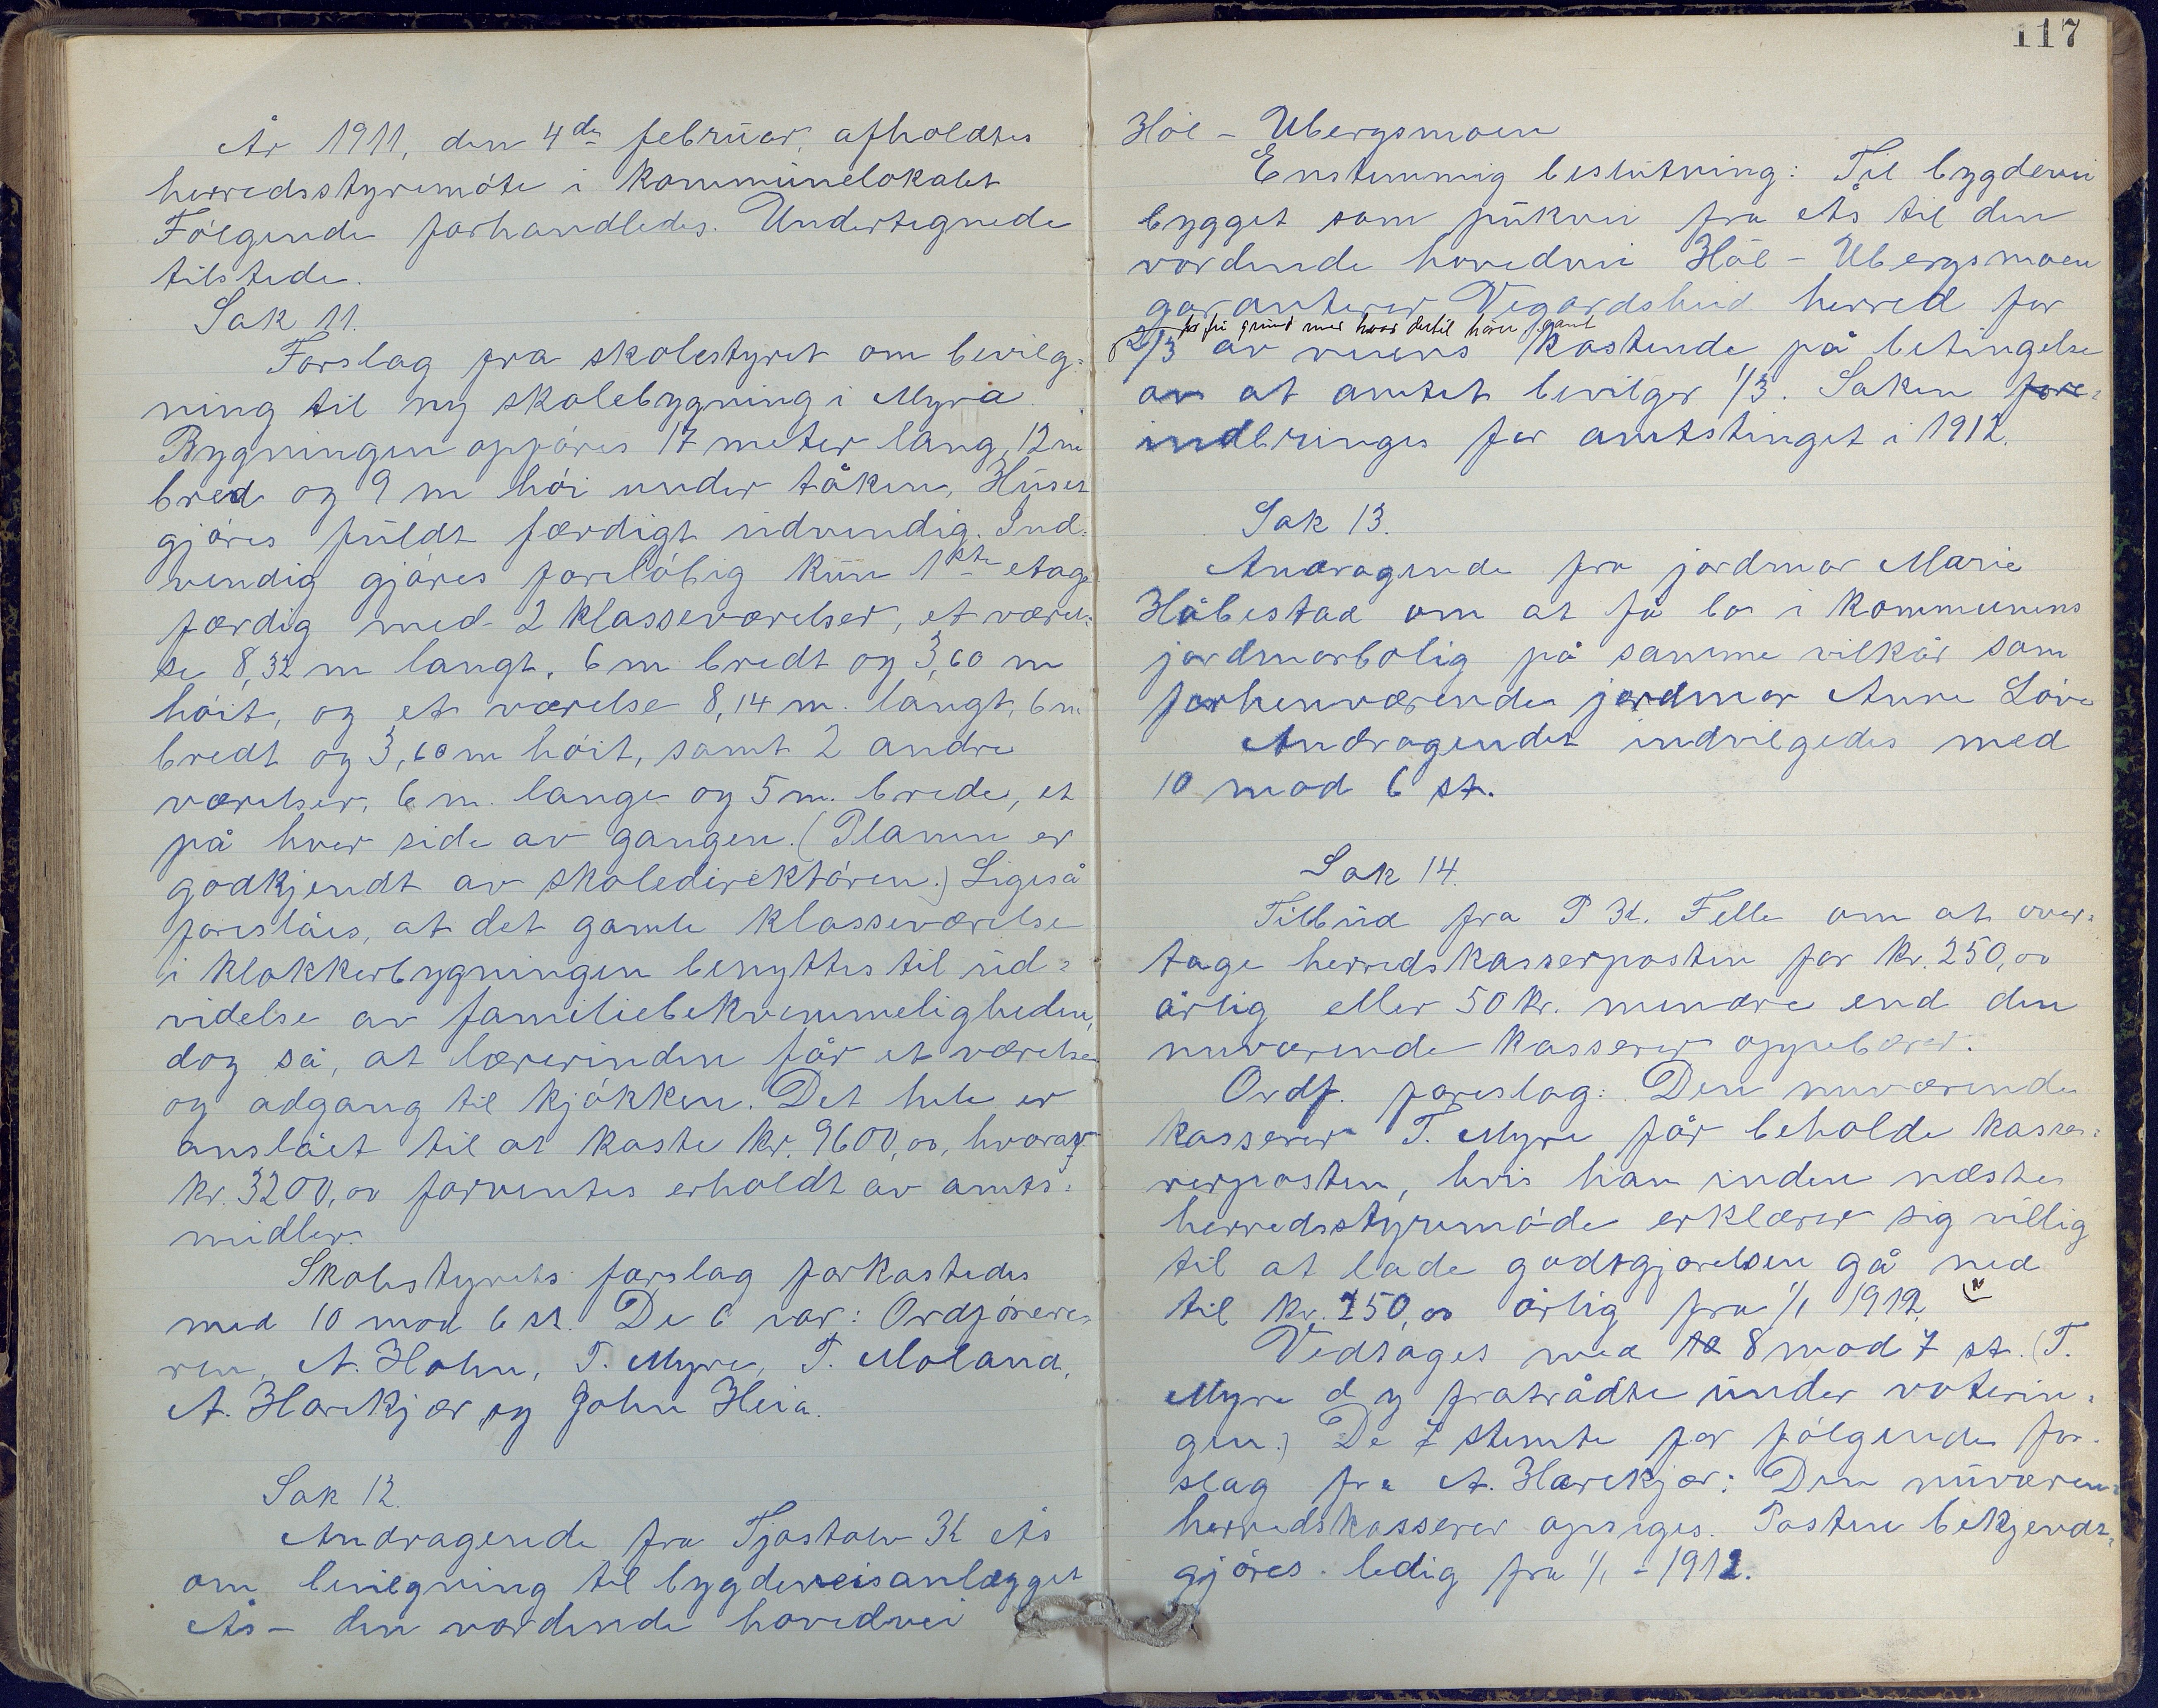 År 1911, den 4de februar, afholdtes
herredsstyremöte i kommunelokalet
Fölgende forhandledes. Undertegnede
tilstede.
Sak 11.
Forslag fra skolestyret om bevilg-
ning til ny skolebygning i Myra.
Bygningen opföres 17 meter lang, 12 m
bred og 9 m höi under tåken, Huset
gjöres fuldt færdigt udvendig. Ind-
vendig gjöres foreløbig kun 1ste etage
færdig med 2 klasseværelser, et værel-
se 8,32 m langt, 6 m bredt og 3,60 m
höit, og et værelse 8,14 m. langt, 6 m
bredt og 3,60 m höit, samt 2 andre
værelser, 6 m. lange og 5 m. brede, et
på hver side av gangen. (Planen er
godkjendt av skoledirektören.) Ligeså
foreslåes, at det gamle klasseværelse
i klokkerbygningen benyttes til ud-
videlse av familiebekvemmeligheden,
dog så, at lærerinden får et værelse
og adgang til kjökken. Det hele er
anslået til at koste kr. 9600,00, hvorav
kr. 3200,00 forventes erholdt av amts-
midler.
Skolestyrets forslag forkastedes
med 10 mod 6 st. De 6 var: Ordförere-
ren, A. Holm, T. Myre, T. Moland,
A. Harekjær og John Heia.
Sak 12.
Andragende fra Tjostolv K Ås
om bevilgning til bygdeveisanlægget
Ås - den vordende hovedvei
117
Höl - Ubergsmoen
Enstemmig beslutning: Til bygdevei
bygget som pukvei fra Ås til den
vordende hovedvei Höl - Ubergsmoen
garanterer Vegardsheid herred for
for fri grind med hvad dertil hörer, samt
2/3 av veiens kostende på betingelse
av at amtet bevilger 1/3. Saken fore-
indbringes for amtstinget i 1912.
Sak 13.
Andragende fra jordmor Marie
Håbestad om at få bo i kommunens
jordmorbolig på samme vilkår som
forhenværende jordmor Anne Löve
Andragendet indvilgedes med
10 mod 6 st.
Sak 14.
Tilbud fra P K. Felle om at over-
tage herredskasserposten for kr. 250,00
årlig eller 50 kr. mindre end den
nuværende kasserer oppebærer.
Ordf. foreslog: Den nuværende
kasserer T. Myre får beholde kasse-
rerposten, hvis han inden næste
herredsstyremöde erklærer sig villig
til at lade godtgjörelsen gå ned
til kr. 250,00 årlig fra 1/1 1912.
Vedtages med 10 8 mod 7 st. (T.
Myre d y fratrådte under voterin-
gen.) De 7 stemte for fölgende for-
slag fra A. Harekjær: Den nuværen-
herredskasserer opsiges. Posten bekjendt-
gjöres ledig fra 1/1 - 1912.